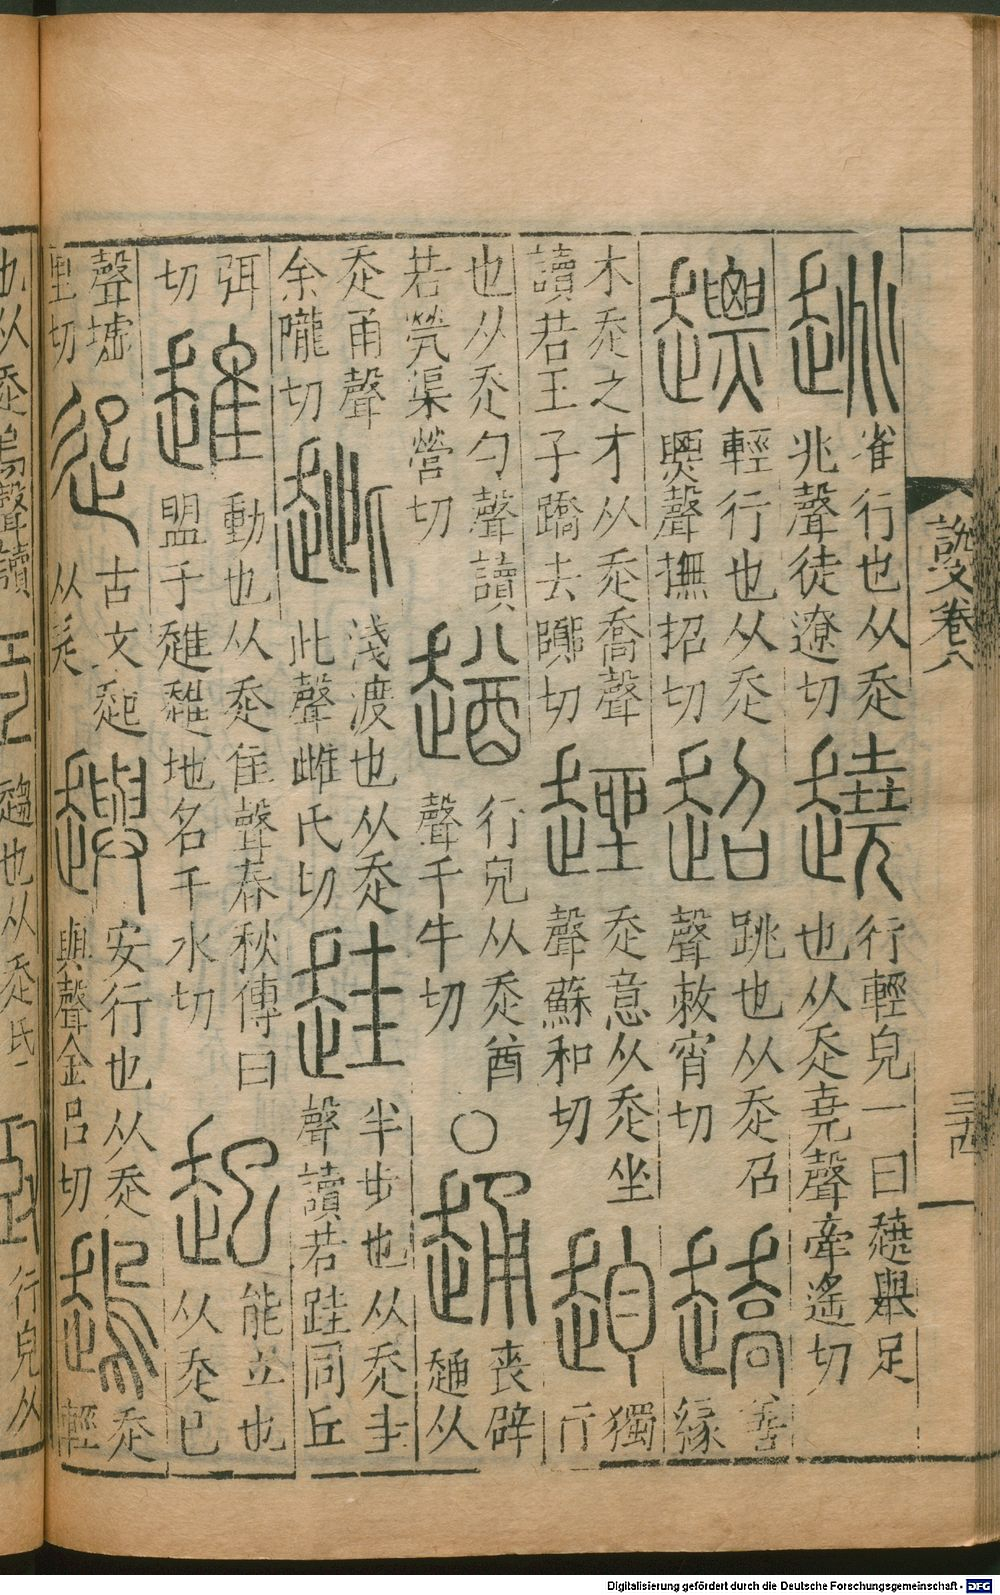 說文卷八
三十四
趒
雀行也从走
兆聲徒遼切
趬
行輕皃一曰趬舉足
也从走堯聲牽遙切
𧽤
輕行也从走
㷼聲撫招切
超
跳也从走召
聲敕宵切
趫
善
緣
木走之才从走喬聲
讀若王子蹻去嚻切
趖
走意从走坐
聲蘇和切
赹
獨
行
也从走勹聲讀
若煢渠營切
趥
行皃从走酋
聲千牛切
〇
𧻹
喪辟
𧻹从
走甬聲
余隴切
䞣
淺渡也从走
此聲雌氏切
𧻲
半步也从走圭
聲讀若跬同丘
弭
切
趡
動也从走隹聲春秋傳曰
盟于趡趡地名千水切
起
能立也
从走巳
聲墟
里切
古文起
从辵
𧾚
安行也从走
與聲余呂切
走
輕
也从走烏聲讀
趨也从走氏
行皃从